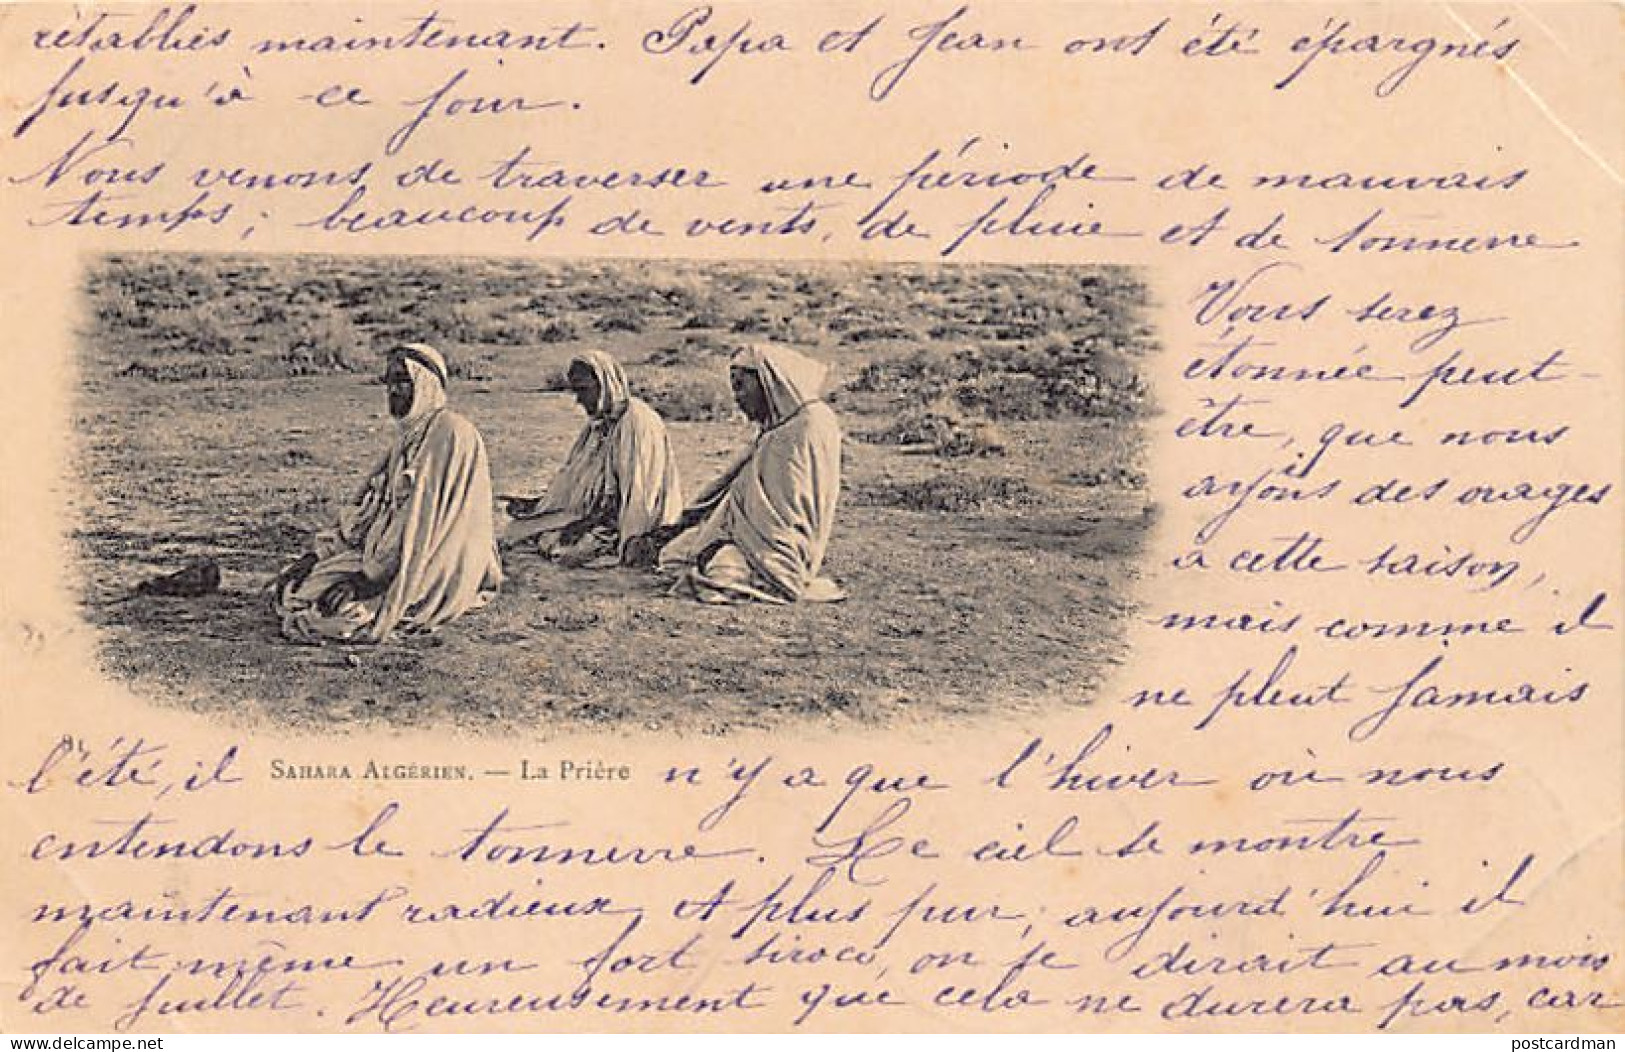 rétablies maintenant. Papa et Jean ont été épargnés
jusqu'à ce jour.
Nous venons de traverser une période de mauvais
temps; beaucoup de vents, de pluie et de tonnerre
Vous serez
étonnée peut-
être, que nous
ayons des orages
à cette saison,
mais comme il
ne pleut jamais
l'été, il n'y a que l'hiver où nous
SAHARA ALGÉRIEN. — La Prière
entendons le tonnerre. Le ciel se montre
maintenant radieux, et plus pur; aujourd'hui il
fait même un fort siroco, on se dirait au mois
de juillet. Heureusement que cela ne durera pas, car
delcampe.net
postcardman